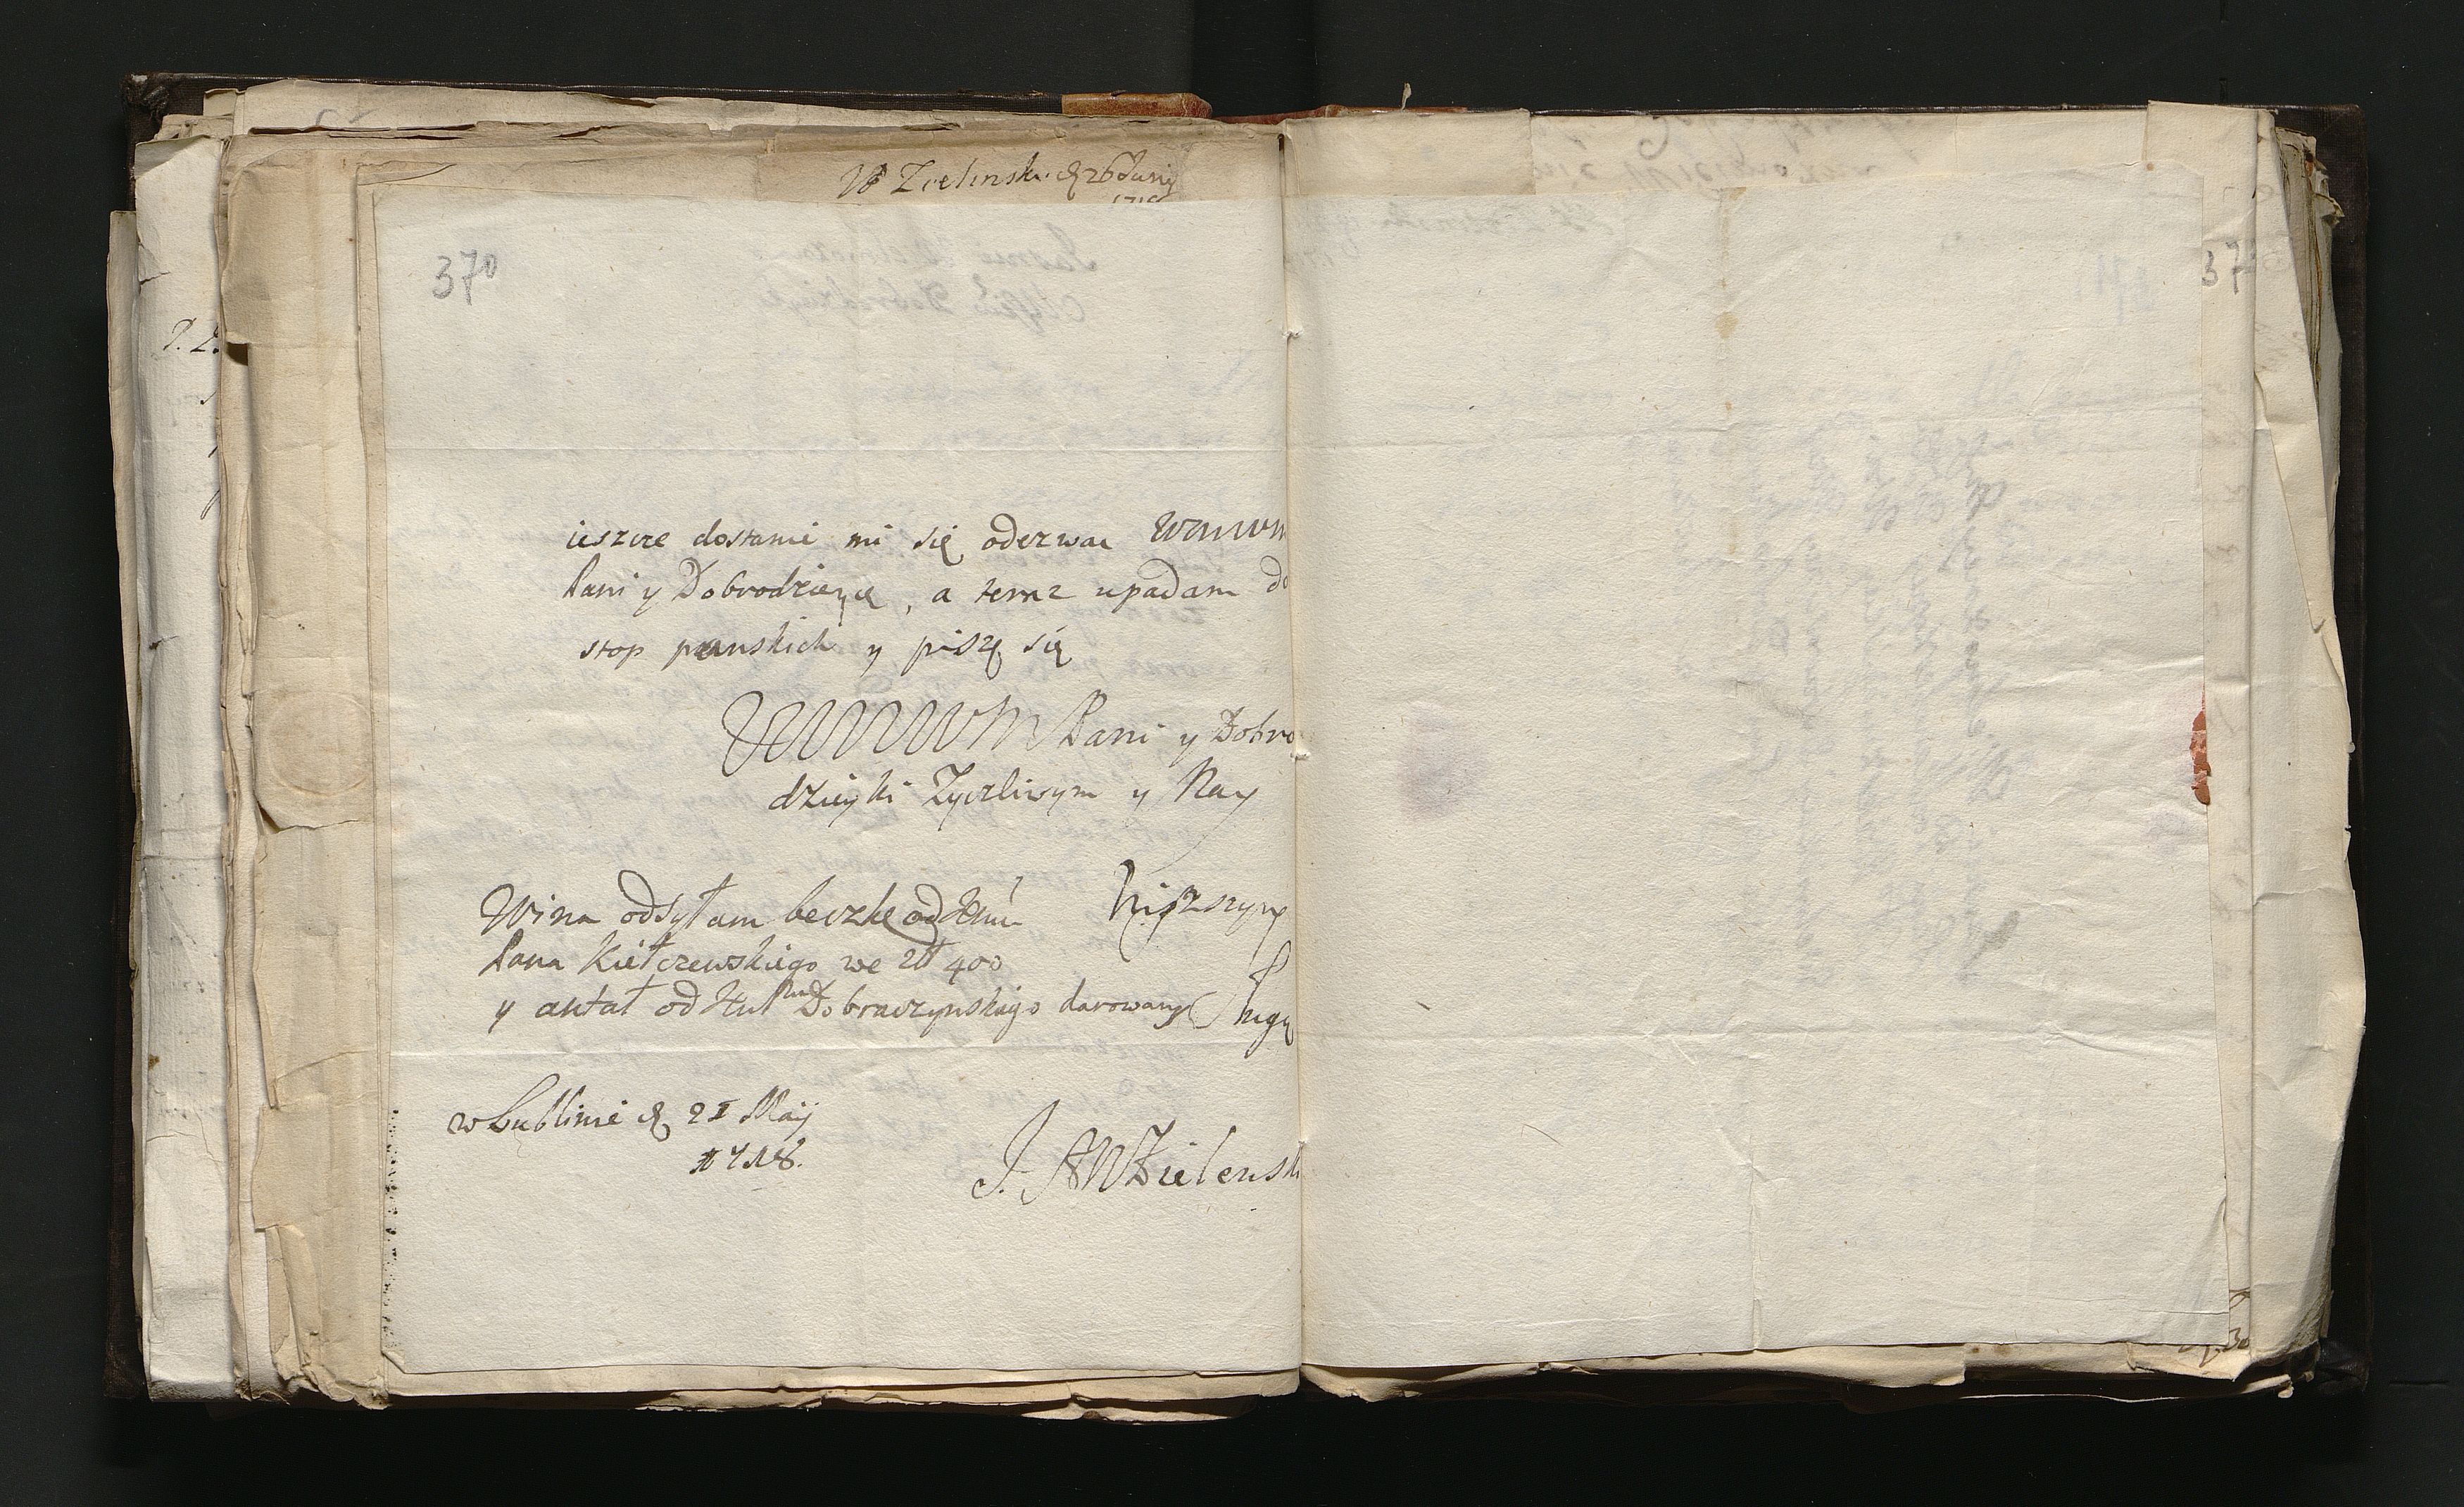 W Zielinski d 26 Junij
370
ieszcze dostanie mi się oderwac WMM
Pani y Dobrodzieyce, a teraz upadam do
stop panskich y piszę się
Pani y Dobro
dzieyki Zyczliwym y Nay
niższym
Wina odsyłam beczkę od
Pana Kiełczewskiego we zł 400
y antał od Dobraczynskiego darowany
sługą
w Lublinie d 21 Maij
1718.
J. Zielensk
37